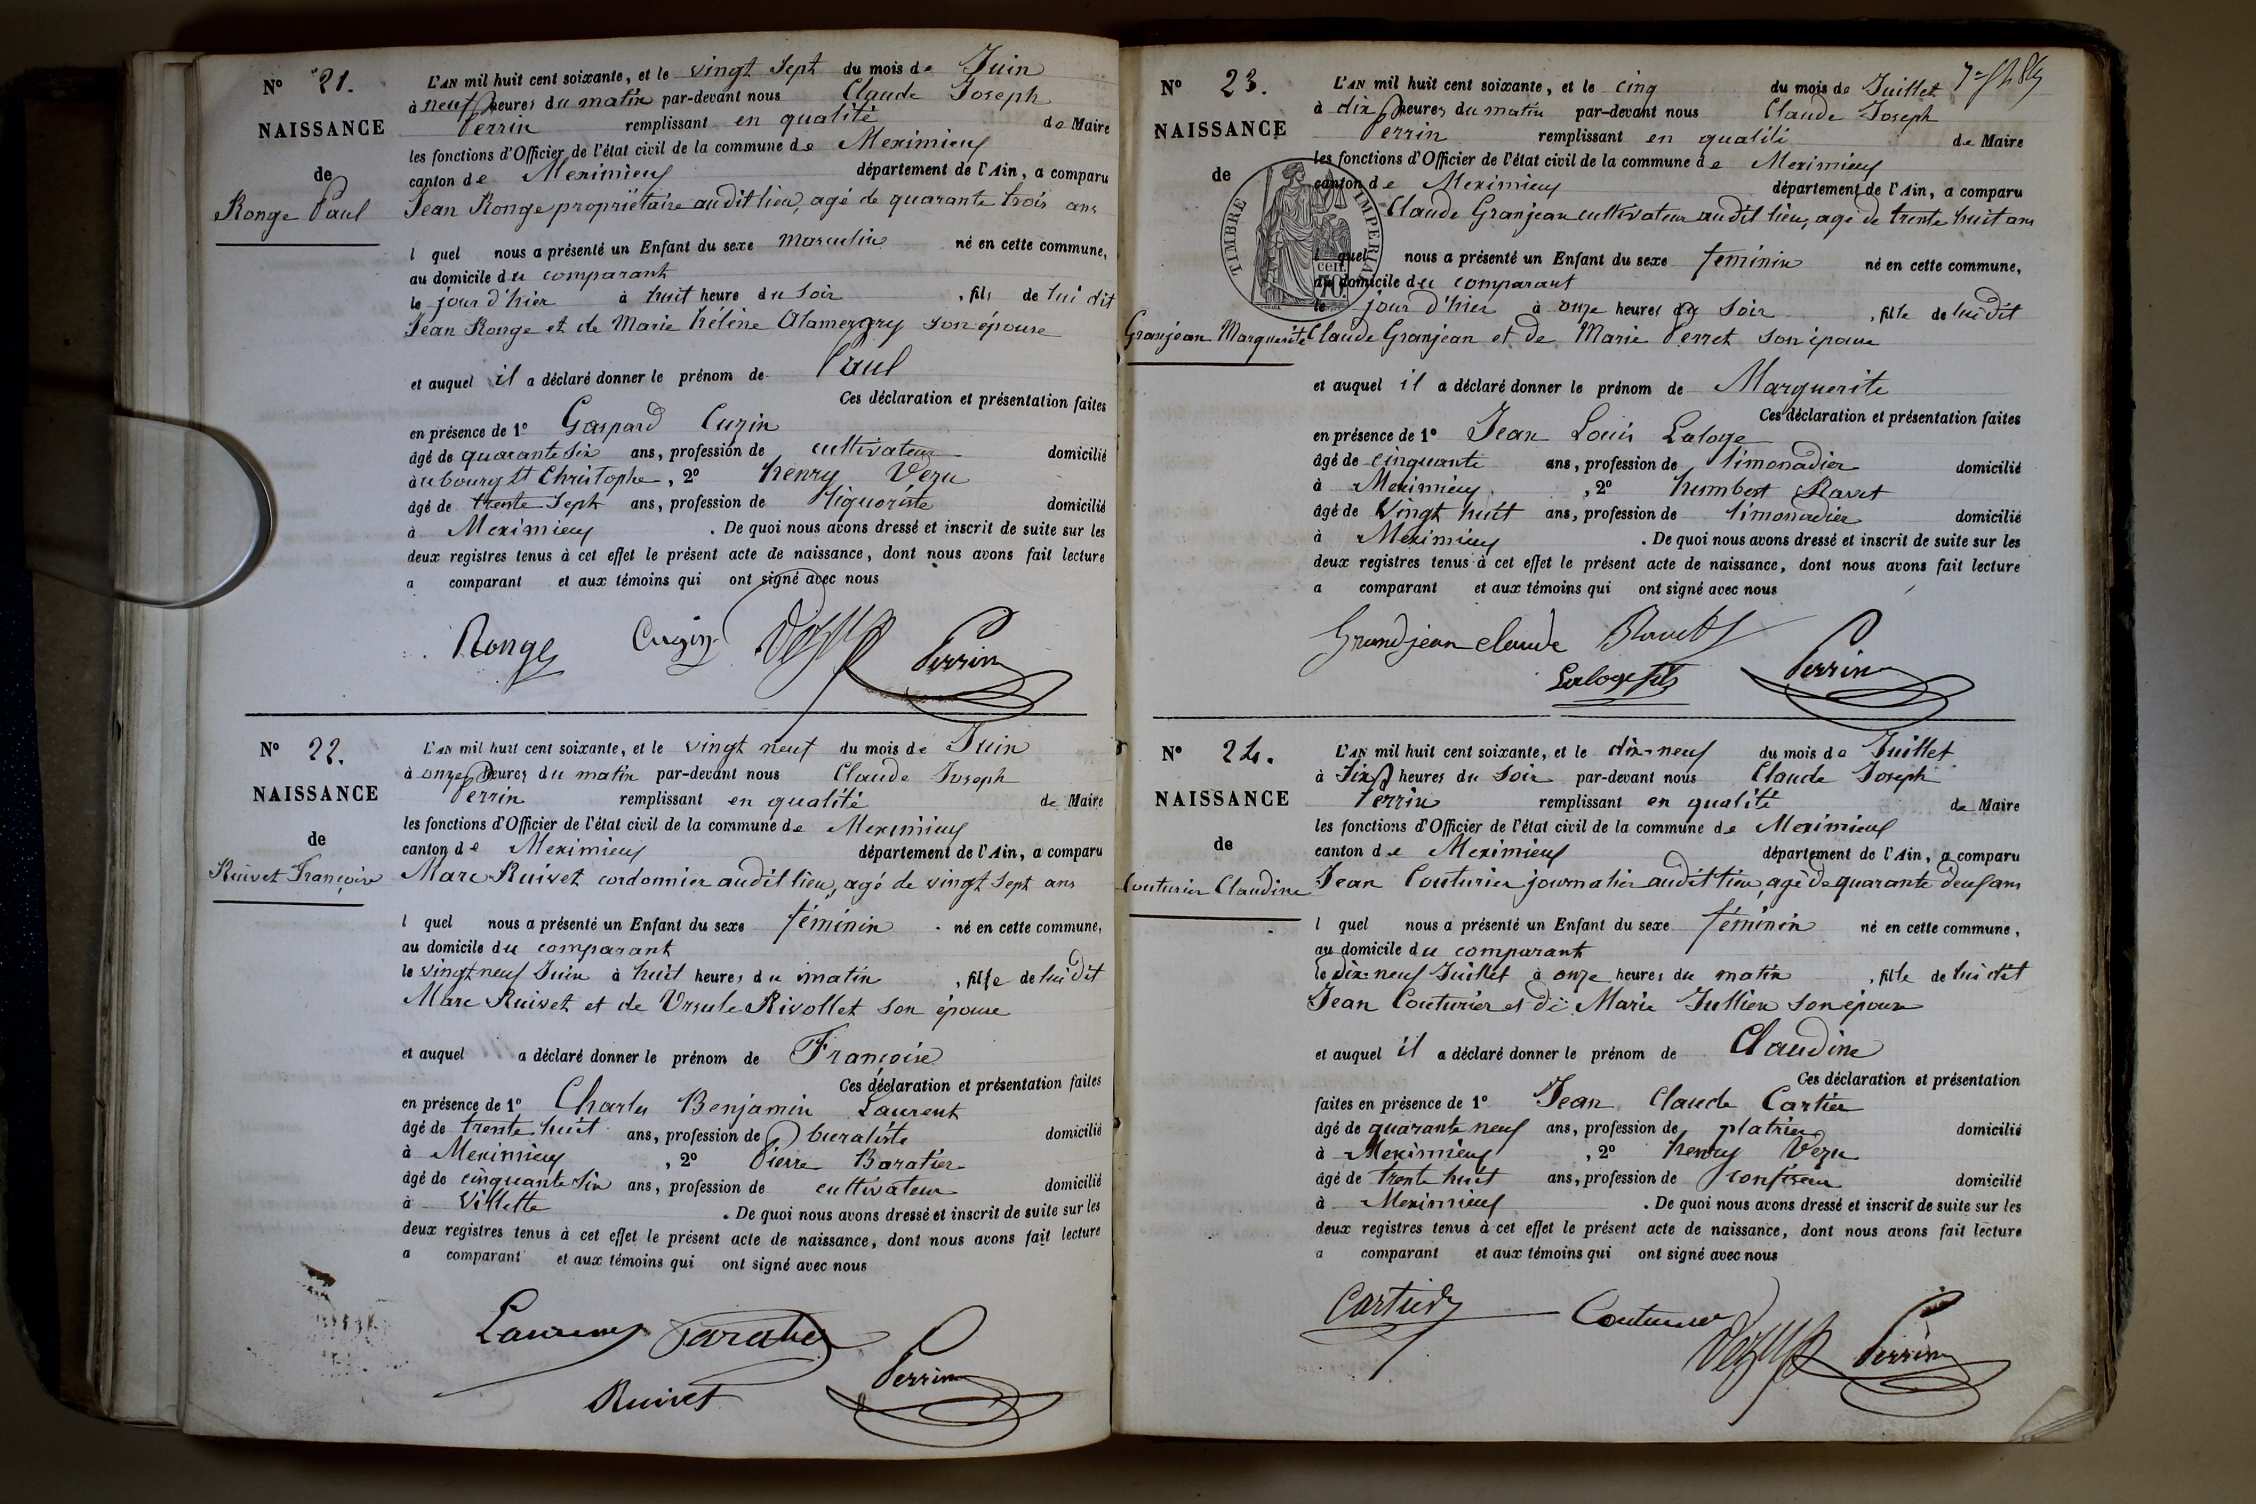 N° 21.
NAISSANCE
de
Ronge Paul
L'AN mil huit cent soixante, et le vingt sept du mois de Juin
à neuf heures du matin par-devant nous Claude Joseph
Perrin remplissant en qualité de Maire
les fonctions d'Officier de l'état civil de la commune de Meximieux
canton de Meximieux département de l'Ain, a comparu
Jean Ronge propriétaire audit lieu, agé de quarante trois ans
l quel nous a présenté un Enfant du sexe masculin né en cette commune,
au domicile du comparant
le jour d'hier à huit heure du soir, fils de lui dit
Jean Ronge et de Marie hélène son épouse
et auquel il a déclaré donner le prénom de Paul
Ces déclaration et présentation faites
en présence de 1° Gaspard Cuzin
âgé de quarante six ans, profession de cultivateur domicilié
à u bourg St Christophe, 2° henry Vezu
âgé de trente sept ans, profession de liquoriste domicilié
à Meximieux. De quoi nous avons dressé et inscrit de suite sur les
deux registres tenus à cet effet le présent acte de naissance, dont nous avons fait lecture
a comparant et aux témoins qui ont signé avec nous
Ronge Cuzin Vezu Perrin
N° 22.
NAISSANCE
de
Ruivet Françoise
L'AN mil huit cent soixante, et le vingt neuf du mois de Juin
à onze heures du matin par-devant nous Claude Joseph
Perrin remplissant en qualité de Maire
les fonctions d'Officier de l'état civil de la commune de Meximieux
canton de Meximieux département de l'Ain, a comparu
Marc Ruivet cordonnier audit lieu, agé de vingt sept ans
l quel nous a présenté un Enfant du sexe féminin né en cette commune,
au domicile du comparant
le vingt neuf Juin à huit heures du matin, fille de lui dit
Marc Ruivet et de Ursule Rivollet son épouse
et auquel a déclaré donner le prénom de Françoise
Ces déclaration et présentation faites
en présence de 1° Charles Benjamin Laurent
âgé de trente huit ans, profession de buraliste domicilié
à Meximieux, 2° Pierre Baratier
âgé de cinquante six ans, profession de cultivateur domicilié
à Villette. De quoi nous avons dressé et inscrit de suite sur les
deux registres tenus à cet effet le présent acte de naissance, dont nous avons fait lecture
a comparant et aux témoins qui ont signé avec nous
Laurent Baratier
Ruivet Perrin
N° 23.
NAISSANCE
de
TIMBRE IMPERIAL
70 cen.
Granjean Marguerite
L'AN mil huit cent soixante, et le cinq du mois de Juillet
à dix heures du matin par-devant nous Claude Joseph
Perrin remplissant en qualité de Maire
les fonctions d'Officier de l'état civil de la commune de Meximieux
canton de Meximieux département de l'Ain, a comparu
Claude Granjean cultivateur audit lieu, agé de trente huit ans
l quel nous a présenté un Enfant du sexe féminin né en cette commune,
au domicile du comparant
le jour d'hier à onze heures du soir, fille de lui dit
Claude Granjean et de Marie Perret son épouse
et auquel il a déclaré donner le prénom de Marguerite
Ces déclaration et présentation faites
en présence de 1° Jean Louis Laloge
âgé de cinquante ans, profession de limonadier domicilié
à Meximieux, 2° humbert Ravet
âgé de vingt huit ans, profession de limonadier domicilié
à Meximieux. De quoi nous avons dressé et inscrit de suite sur les
deux registres tenus à cet effet le présent acte de naissance, dont nous avons fait lecture
a comparant et aux témoins qui ont signé avec nous
Grandjean claude Ravet
Laloge Perrin
N° 24.
NAISSANCE
de
Couturier Claudine
L'AN mil huit cent soixante, et le dix-neuf du mois de Juillet
à six heures du soir par-devant nous Claude Joseph
Perrin remplissant en qualité de Maire
les fonctions d'Officier de l'état civil de la commune de Meximieux
canton de Meximieux département de l'Ain, a comparu
Jean Couturier journalier audit lieu, agé de quarante deux ans
l quel nous a présenté un Enfant du sexe féminin né en cette commune,
au domicile du comparant
le dix-neuf Juillet à onze heures du matin, fille de lui dit
Jean Couturier et de Marie Jullien son épouse
et auquel il a déclaré donner le prénom de Claudine
Ces déclaration et présentation
faites en présence de 1° Jean Claude Cartier
âgé de quarante neuf ans, profession de platrier domicilié
à Meximieux, 2° henry Vezu
âgé de trente huit ans, profession de confiseur domicilié
à Meximieux. De quoi nous avons dressé et inscrit de suite sur les
deux registres tenus à cet effet le présent acte de naissance, dont nous avons fait lecture
a comparant et aux témoins qui ont signé avec nous
Cartier Couturier
Vezu Perrin